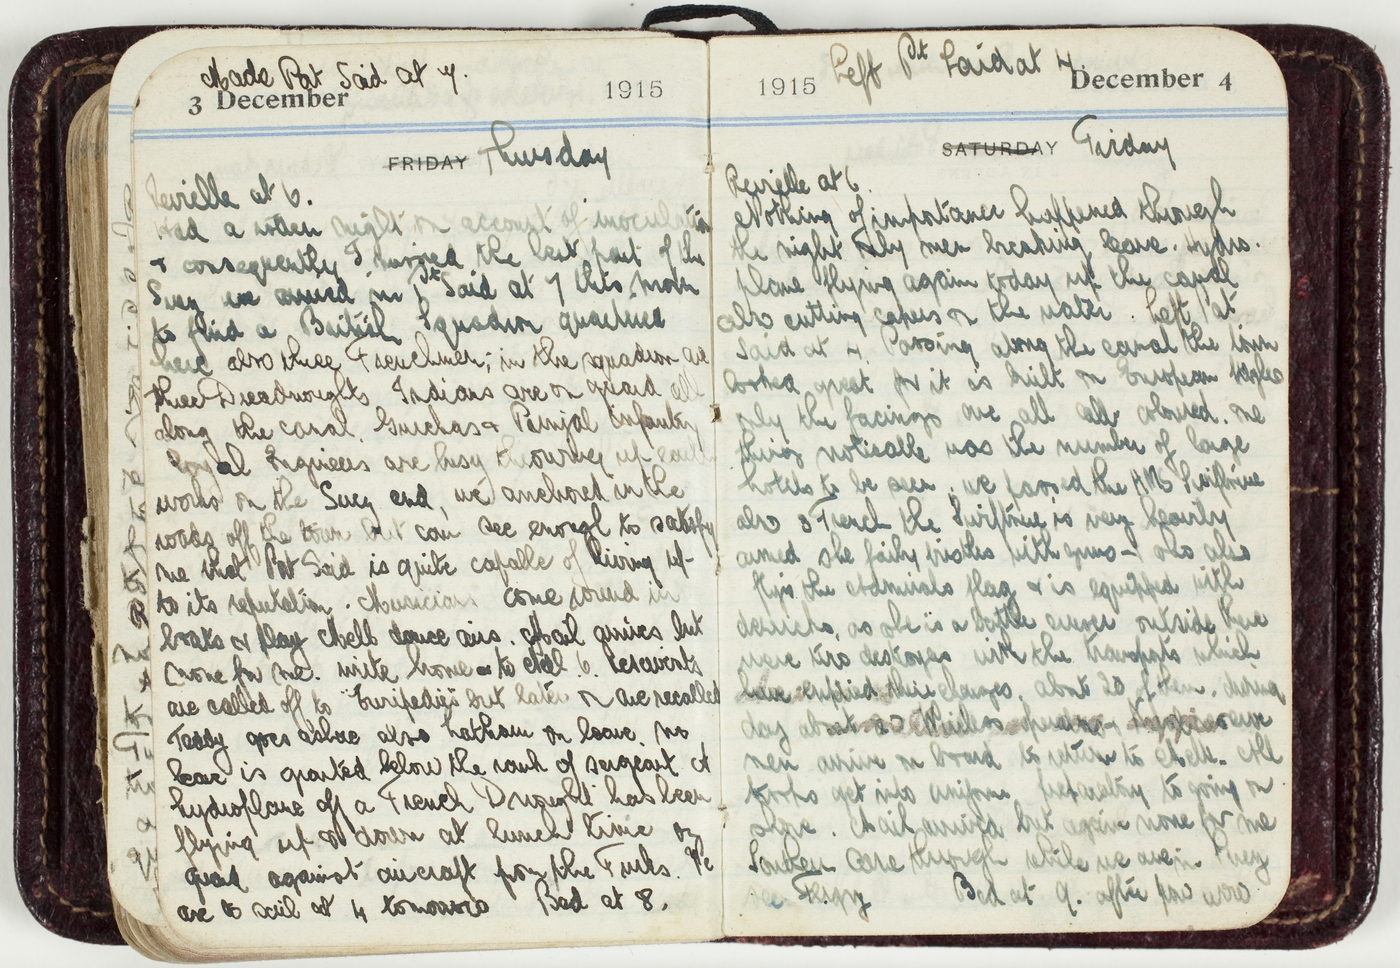 Made Pot Said at 7.
3 December 1915
FRIDAY Thursday
Revielle at 6.
Had a rotten night on account of inoculation
& consequently I missed the best part of the
Suez we arrived in Pt Said at 7 this morn
to find a British Squadron quartered
here also three Frenchmen; in the squadron are
three Dreadnoughts. Indians are on guard all
along the canal. Gurkhas & Punjal Infantry
Royal Engineers are busy throwing up earth
works on the Suez end, we anchored in the
roads off the town but can see enough to satisfy
me that Pot Said is quite capable of living up
to its reputation. Musicians come round in
boats & play dance airs. Mail arrives but
none for me. write home to
are called off to "Euripedies but later on are recalled
Teddy goes ashore also Latham on leave. No
leave is granted below the rank of sergeant. A
hydroplane off a French D'nought has been
flying up & down at lunch time on
guard against aircraft from the Turks. We
are to sail at 4 tomorrow Bed at 8.
1915 Left Pt Said at 4 December 4
SATURDAY Friday
Revielle at 6.
Nothing of importance happened through
the night only men breaking leave. Hydro.
plane flying again today up the canal
also cutting capers on the water. Left Pot
Said at 4. Passing along the canal the town
looked great for it is built on European
only the facings are all coloured. one
thing noticable was the number of large
hotels to be seen. we passed the HMS Swiftsure
also 3 French the Swiftsure is very heavily
armed she fairly bristles with guns & she also
flys the Admirals flag & is equipped with
derricks, as she is a battle cruiser outside there
were two destroyers with the transports which
have emptied their charges, about 20 of them. during
day about 20
men arrive on board to return to
get into uniform preparatory to going on
shore. Mail arrived but again none for me
came through while we were in Suez
see Fergy Bed at 9. after